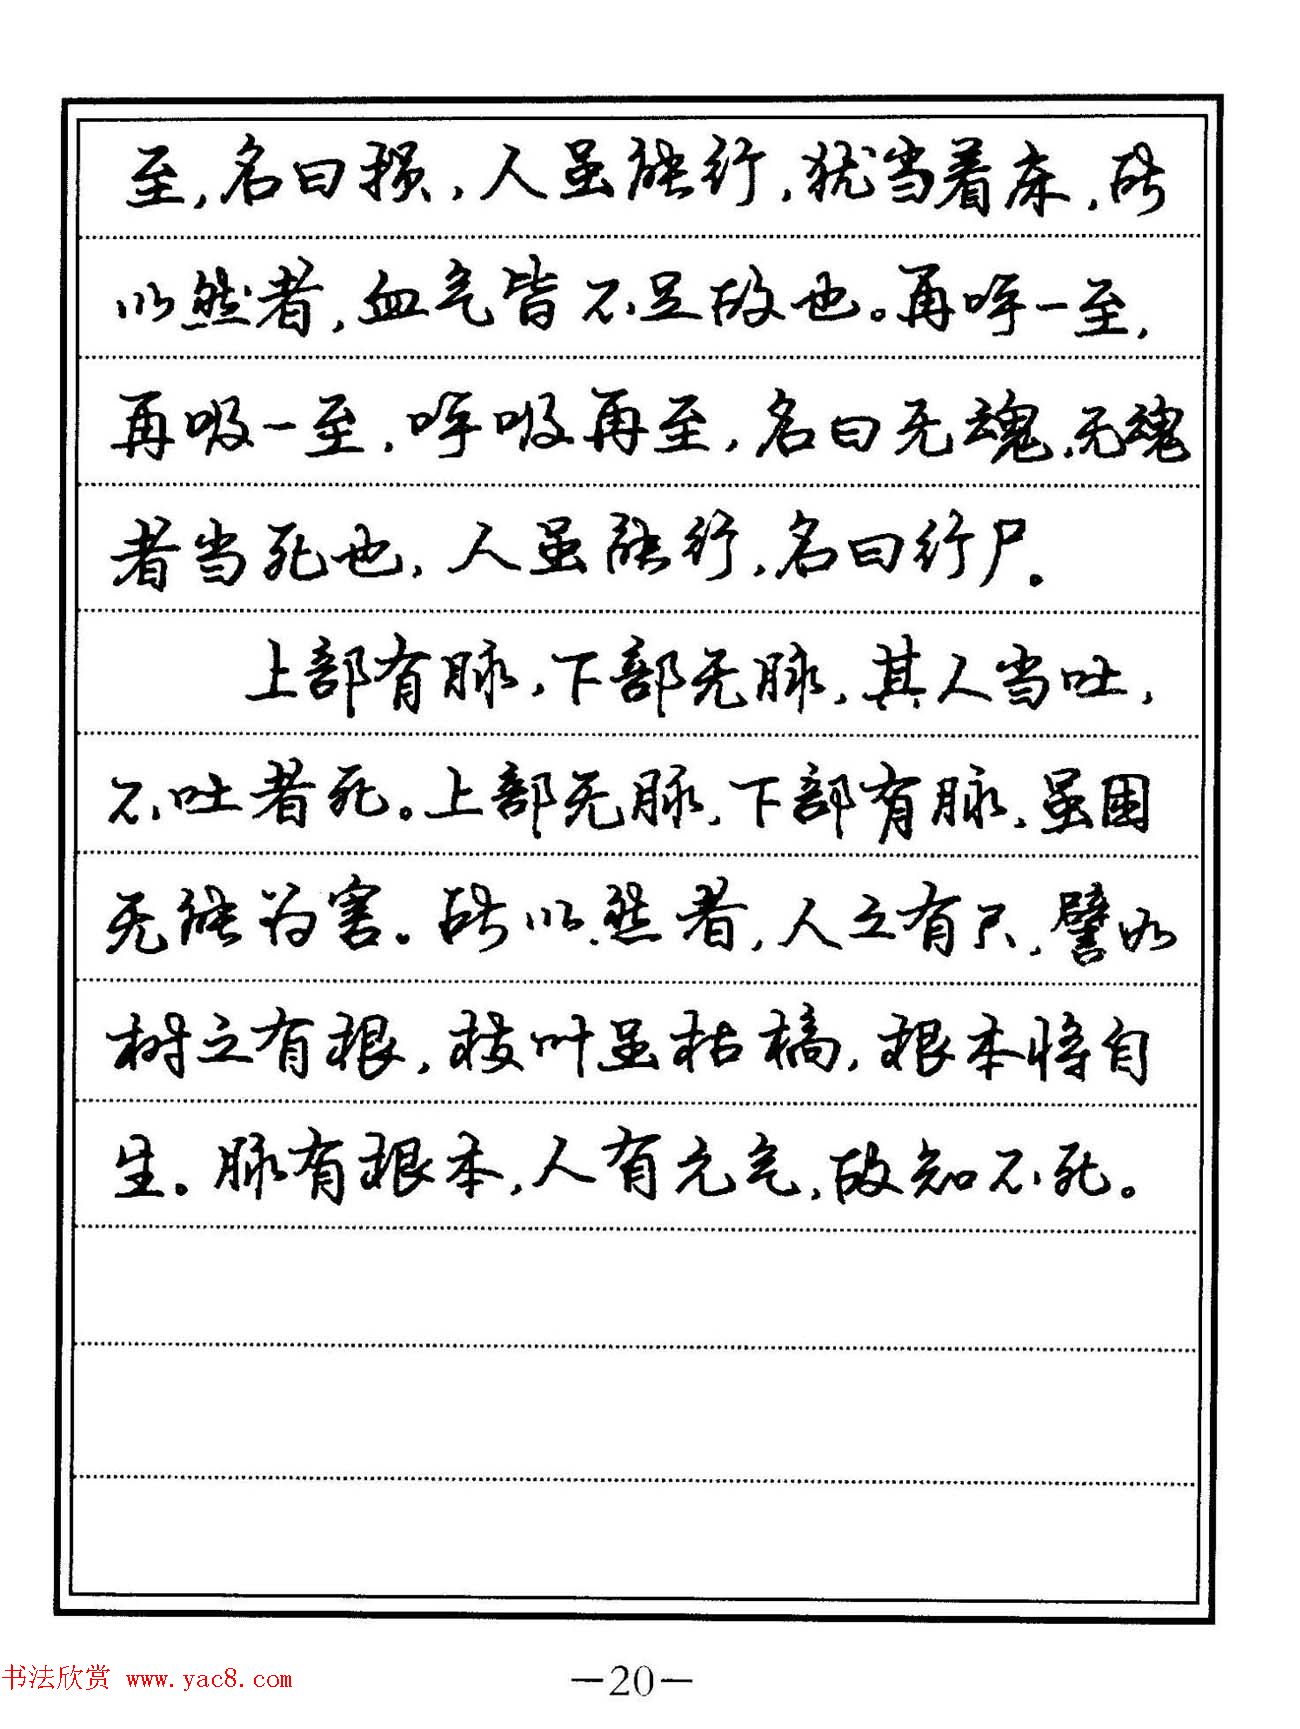 至，名曰损，人虽能行，犹当着床，所
以然者，血气皆不足故也。再呼一至，
再吸一至，呼吸再至，名曰无魂，无魂
者当死也，人虽能行，名曰行尸。
上部有脉，下部无脉，其人当吐，
不吐者死。上部无脉，下部有脉，虽困
无能为害。所以然者，人之有尺，譬如
树之有根，枝叶虽枯槁，根本将自
生。脉有根本，人有元气，故知不死。
书法欣赏 www.yac8.com
—20—